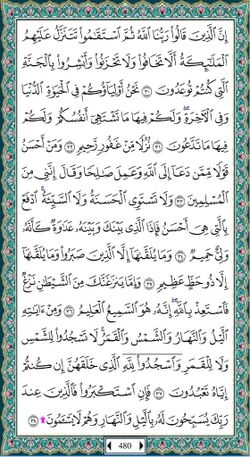 إِنَّ ٱلَّذِينَ قَالُوا۟ رَبُّنَا ٱللَّهُ ثُمَّ ٱسْتَقَٰمُوا۟ تَتَنَزَّلُ عَلَيْهِمُ
ٱلْمَلَٰٓئِكَةُ أَلَّا تَخَافُوا۟ وَلَا تَحْزَنُوا۟ وَأَبْشِرُوا۟ بِٱلْجَنَّةِ
ٱلَّتِى كُنتُمْ تُوعَدُونَ ٣٠ نَحْنُ أَوْلِيَآؤُكُمْ فِى ٱلْحَيَوٰةِ ٱلدُّنْيَا
وَفِى ٱلْءَاخِرَةِ ۖ وَلَكُمْ فِيهَا مَا تَشْتَهِىٓ أَنفُسُكُمْ وَلَكُمْ
فِيهَا مَا تَدَّعُونَ ٣١ نُزُلًا مِّنْ غَفُورٍ رَّحِيمٍ ٣٢ وَمَنْ أَحْسَنُ
قَوْلًا مِّمَّن دَعَآ إِلَى ٱللَّهِ وَعَمِلَ صَٰلِحًا وَقَالَ إِنَّنِى مِنَ
ٱلْمُسْلِمِينَ ٣٣ وَلَا تَسْتَوِى ٱلْحَسَنَةُ وَلَا ٱلسَّيِّئَةُ ۚ ٱدْفَعْ
بِٱلَّتِى هِىَ أَحْسَنُ فَإِذَا ٱلَّذِى بَيْنَكَ وَبَيْنَهُۥ عَدَٰوَةٌ كَأَنَّهُۥ
وَلِىٌّ حَمِيمٌ ٣٤ وَمَا يُلَقَّىٰهَآ إِلَّا ٱلَّذِينَ صَبَرُوا۟ وَمَا يُلَقَّىٰهَآ
إِلَّا ذُو حَظٍّ عَظِيمٍ ٣٥ وَإِمَّا يَنزَغَنَّكَ مِنَ ٱلشَّيْطَٰنِ نَزْغٌ
فَٱسْتَعِذْ بِٱللَّهِ ۖ إِنَّهُۥ هُوَ ٱلسَّمِيعُ ٱلْعَلِيمُ ٣٦ وَمِنْ ءَايَٰتِهِ
ٱلَّيْلُ وَٱلنَّهَارُ وَٱلشَّمْسُ وَٱلْقَمَرُ ۚ لَا تَسْجُدُوا۟ لِلشَّمْسِ
وَلَا لِلْقَمَرِ وَٱسْجُدُوا۟ لِلَّهِ ٱلَّذِى خَلَقَهُنَّ إِن كُنتُمْ
إِيَّاهُ تَعْبُدُونَ ٣٧ فَإِنِ ٱسْتَكْبَرُوا۟ فَٱلَّذِينَ عِندَ
رَبِّكَ يُسَبِّحُونَ لَهُۥ بِٱلَّيْلِ وَٱلنَّهَارِ وَهُمْ لَا يَسْـَٔمُونَ ۩ ٣٨
480